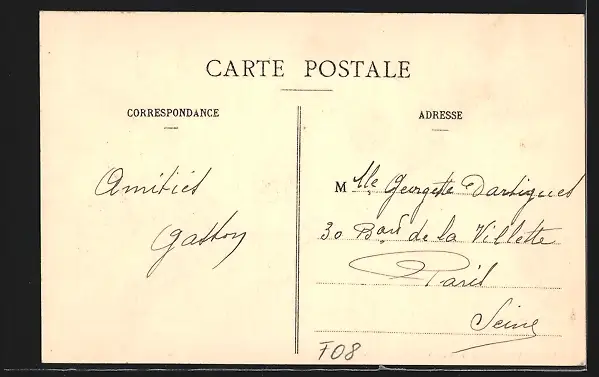 CARTE POSTALE
CORRESPONDANCE
ADRESSE
Amitiés
Gaston
Mlle Georgette Dartigues
30 Bard de la Villette
Paris
Seine
F08